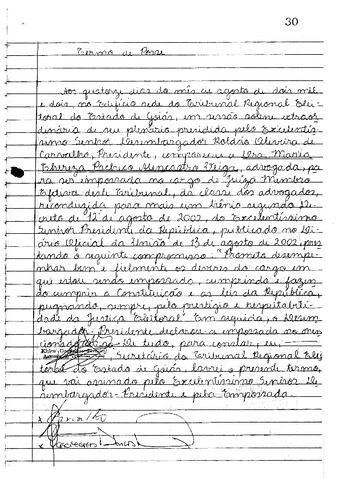 30
Termo de Posse
Aos quatorze dias do mês de agosto de dois mil
e dois, no Edifício sede do Tribunal Regional Elei-
toral do Estado de Goiás, em sessão solene extraor-
dinária de seu plenário presidida pelo Excelentís-
simo Senhor Desembargador Roldão Oliveira de
Carvalho, Presidente, compareceu a Dra. Maria
Thereza Pacheco Alencastro Veiga, advogada, pa-
ra ser empossada no cargo de Juíza Membro
Efetiva deste Tribunal, da classe dos advogados,
reconduzida para mais um biênio segundo De-
creto de 12 de agosto de 2002, do Excelentíssimo
Senhor Presidente da República, publicado no Di-
ário Oficial da União de 13 de agosto de 2002, pres-
tando o seguinte compromisso: "Prometo desempe-
nhar bem e fielmente os deveres do cargo em
que estou sendo empossada, cumprindo e fazen-
do cumprir a Constituição e as leis da República,
pugnando, sempre, pelo prestígio e respeitabili-
dade da Justiça Eleitoral". Em seguida, o Desem-
bargador-Presidente declarou a empossada no men-
cionado cargo. De tudo, para constar, eu,
Secretário do Tribunal Regional Elei-
toral do Estado de Goiás, lavrei o presente termo,
que vai assinado pelo Excelentíssimo Senhor De-
sembargador-Presidente e pela Empossada.